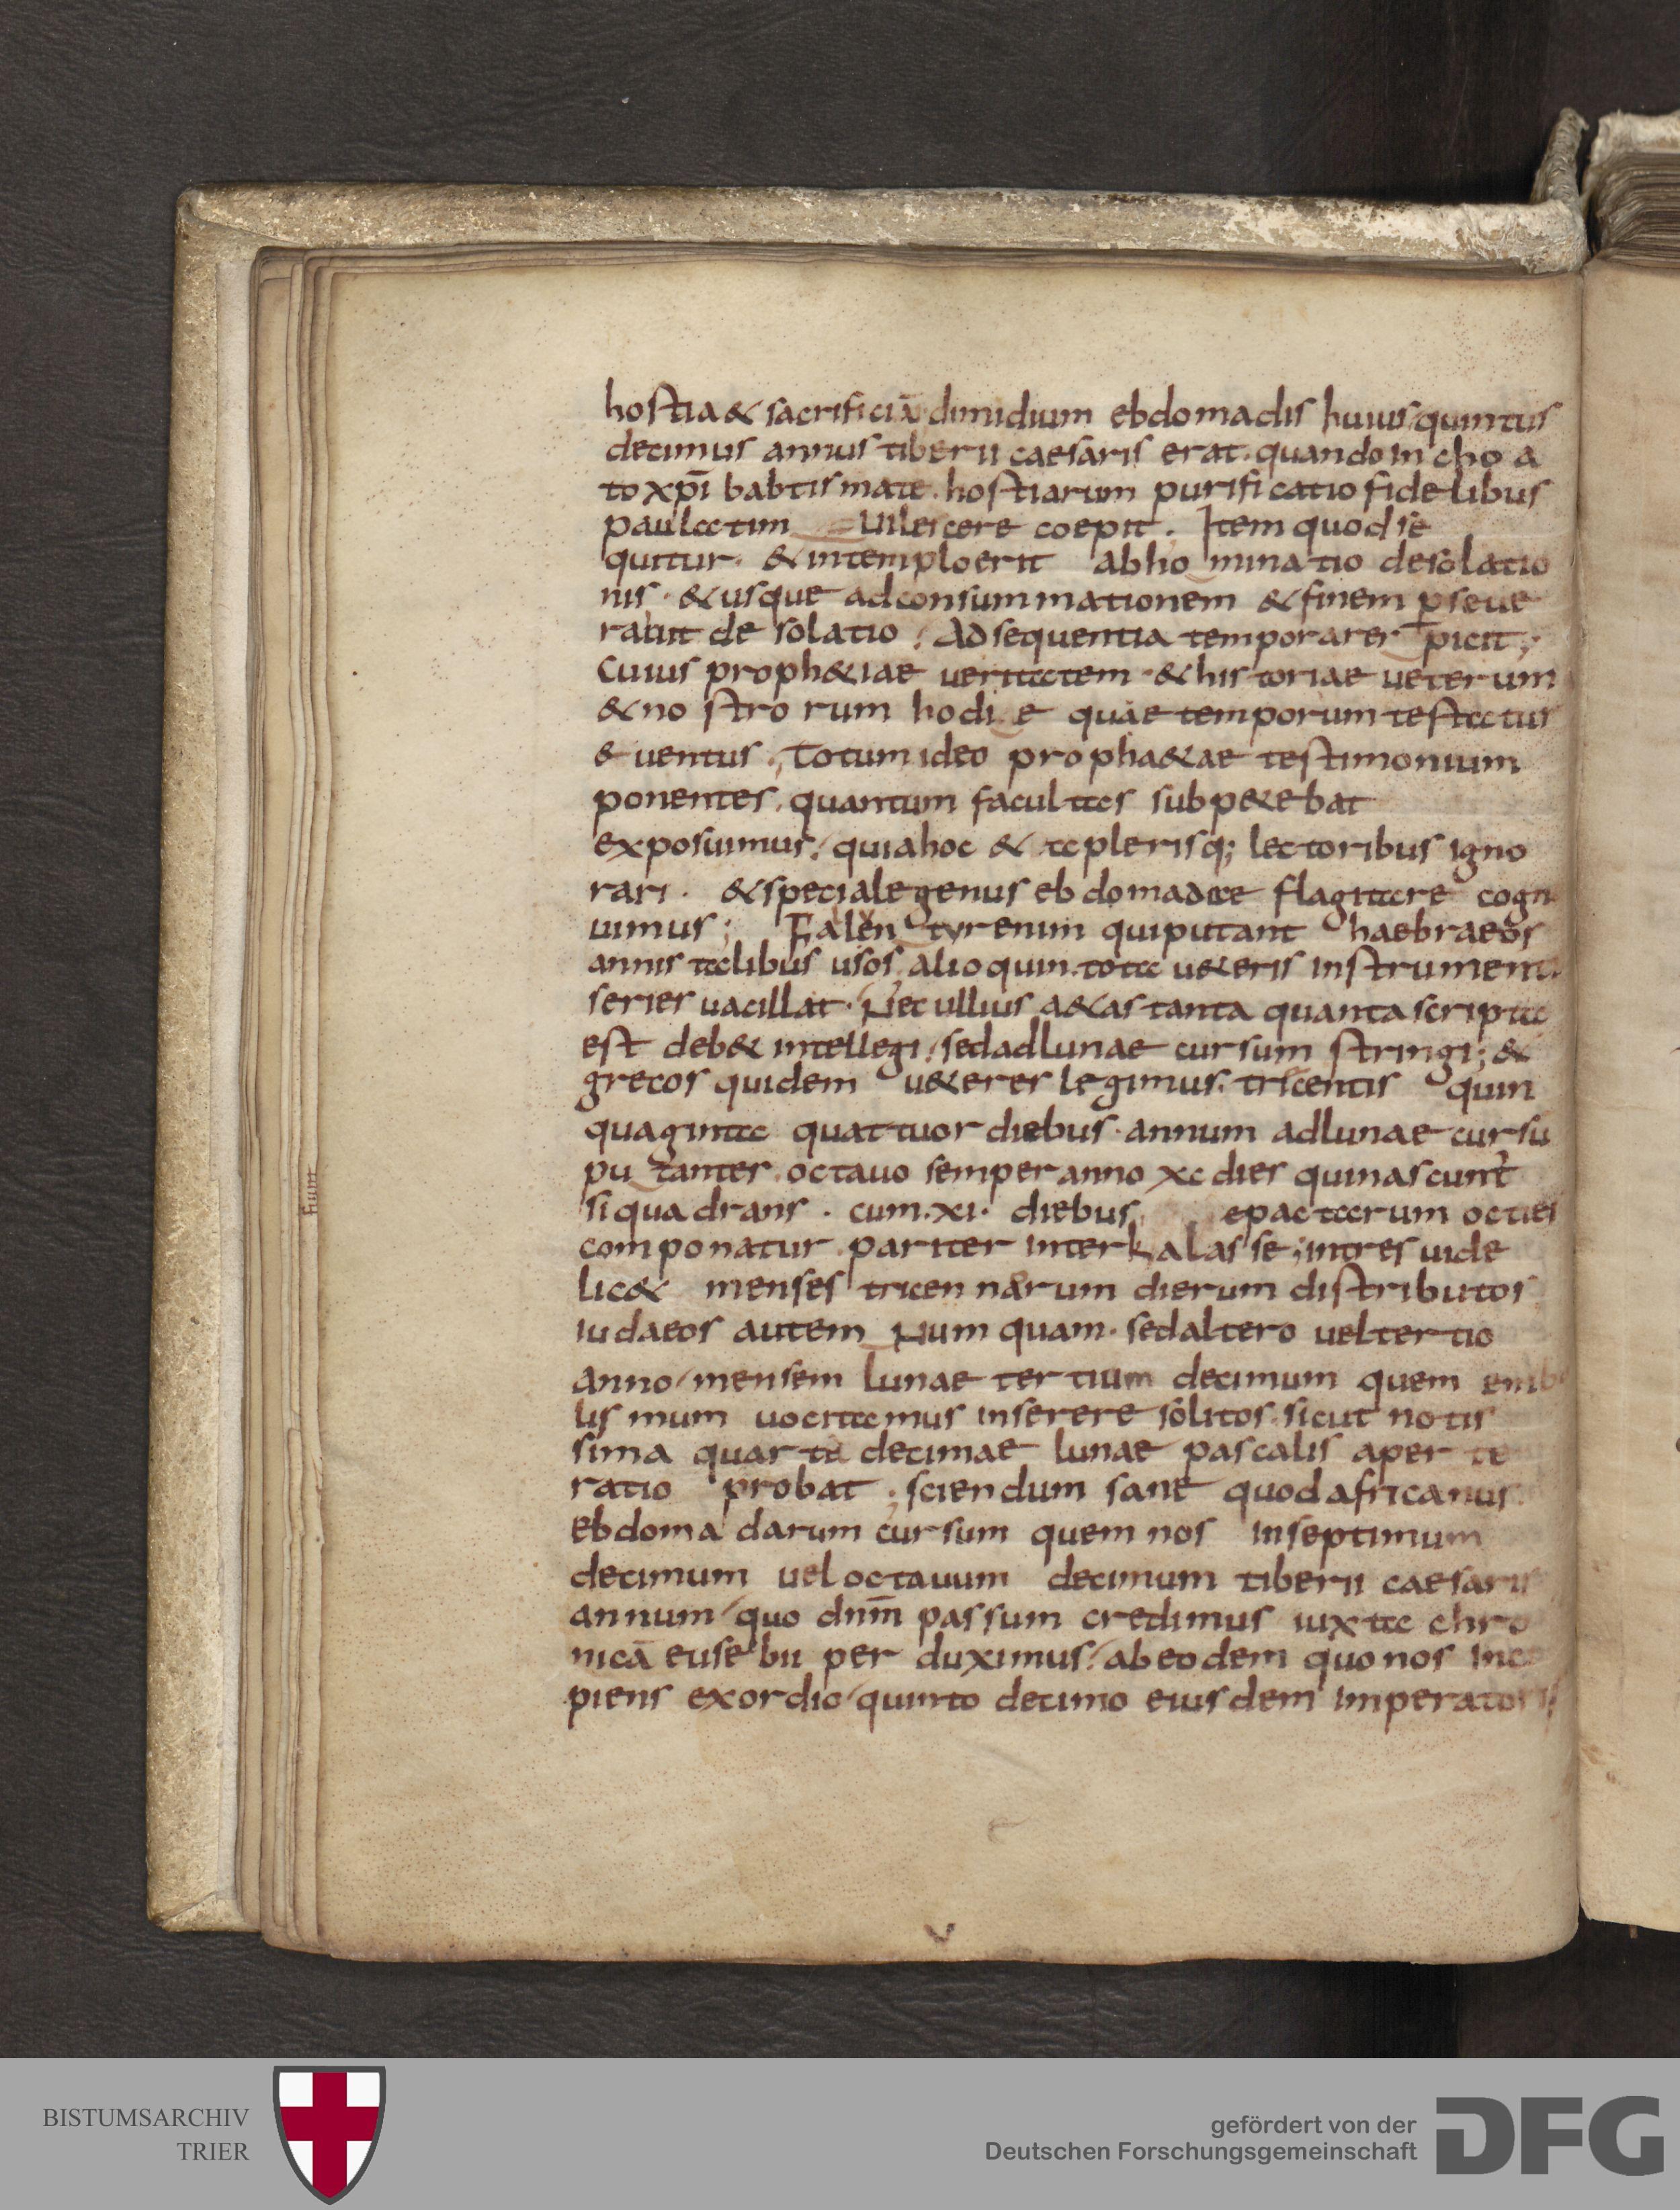 hostia & sacrificiā dimidium ebdomadis huius quintus
decimus annus tiberii caesaris erat. quando incho a
to xp̄i babtismate. hostiarum purificatio fidelibus
paulatim uilescere coepit. Item quod se
quitur. & in templo erit abho minatio desolatio
nis. & usque ad consummationem & finem pseue
rabit de solatio. Ad sequentia tempora respicit;
Cuius proph&iae ueritatem. & historiae ueterum
& no stro rum hodi e quae temporum testatur
euentus. Totum ideo propha&ae testimonium
ponentes. quantum facultas subp&ebat
exposuimus. quia hoc & a plerisq; lectoribus igno
rari. & speciale genus eb domadae flagitare cogn
uimus; Falluntur enim qui putant haebraeos
annis talibus usos, alioquin tota u&eris instrumenti
series uacillat. Nec ullius a&as tanta quanta scripta
est deb& intellegi. sed ad lunae cursum stringi; &
grecos quidem u&eres legimus. tricentis quin
quaginta quattuor diebus. annum ad lunae cursu
pu tantes. octauo semper anno xc dies qui nascunt̉
si quadrans. cum. xi. diebus epactarum octies
componatur pariter interkalasse; in tres uide
lic& menses tricen narum dierum distributos
iudaeos autem Numquam. sed altero uel tertio
anno mensem lunae tertium decimum quem emb
lis mum uocitamus inserere solitos. sicut notis
sima quar ta decimae lunae pascalis aper te
ratio probat. sciendum sane quod africanus
ebdoma darum cursum quem nos in septimum
decimum uel octauum decimum tiberii caesaris
annum quo dnm̄ passum credimus iuxta chro
nicā eusebii per duximus. ab eodem quo nos inci
piens exordio quinto decimo eius dem imperatoris
BISTUMSARCHIV
TRIER
gefördert von der
Deutschen Forschungsgemeinschaft
DFG